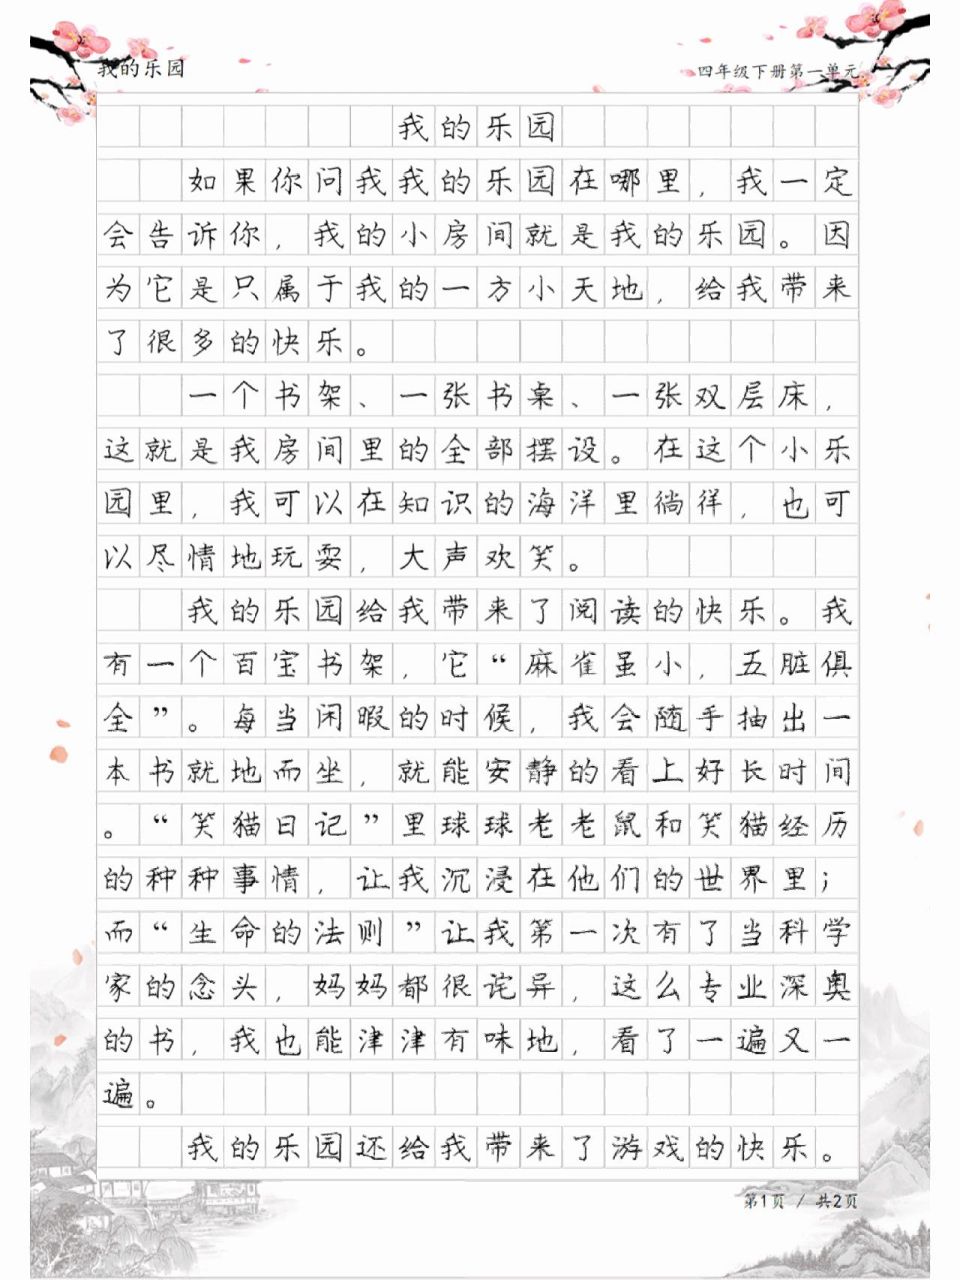 我的乐园
四年级下册第一单元
我的乐园
如果你问我我的乐园在哪里，我一定
会告诉你，我的小房间就是我的乐园。因
为它是只属于我的一方小天地，给我带来
了很多的快乐。
一个书架、一张书桌、一张双层床，
这就是我房间里的全部摆设。在这个小乐
园里，我可以在知识的海洋里徜徉，也可
以尽情地玩耍，大声欢笑。
我的乐园给我带来了阅读的快乐。我
有一个百宝书架，它“麻雀虽小，五脏俱
全”。每当闲暇的时候，我会随手抽出一
本书就地而坐，就能安静的看上好长时间
。“笑猫日记”里球球老老鼠和笑猫经历
的种种事情，让我沉浸在他们的世界里；
而“生命的法则”让我第一次有了当科学
家的念头，妈妈都很诧异，这么专业深奥
的书，我也能津津有味地，看了一遍又一
遍。
我的乐园还给我带来了游戏的快乐。
第1页 / 共2页